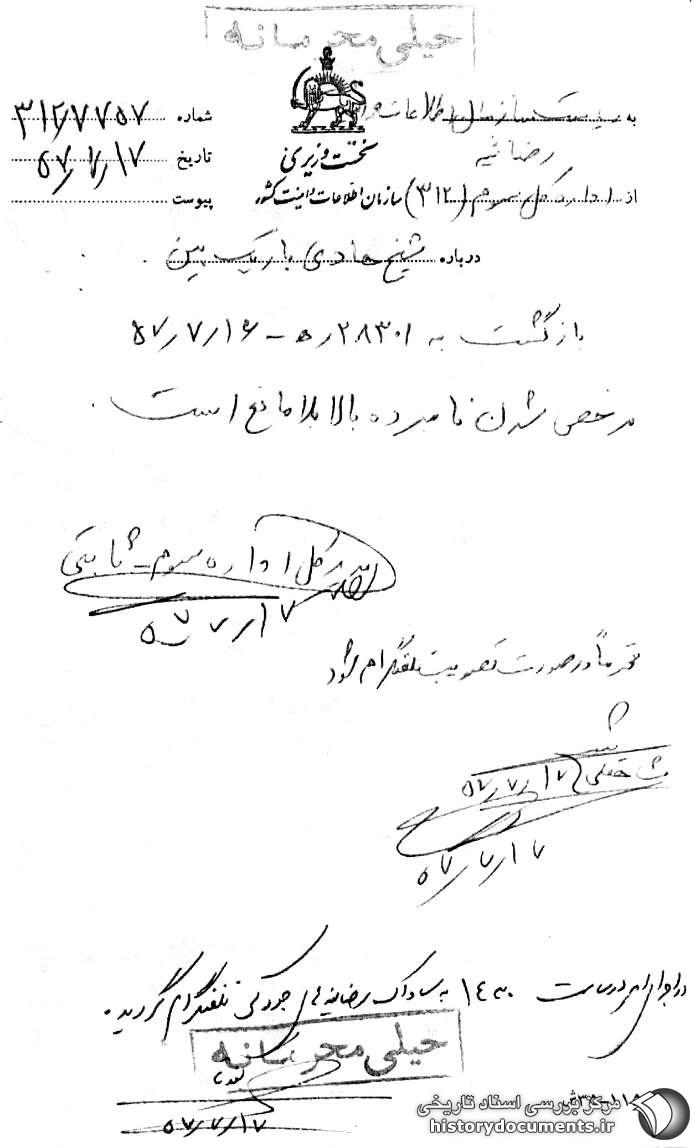 خیلی محرمانه
به ریاست سازمان اطلاعات و ا
رضائیه
شماره ۳۱۲/۷۷۵۷
نخست وزیری
تاریخ ۵۷/۷/۱۷
از اداره کل سوم (۳۱۲)
سازمان اطلاعات و امنیت کشور
پیوست
درباره شیخ هادی باریک بین
بازگشت به ۲۸۳۰۱/ه‍ ـ ۵۷/۷/۱۶
مرخص شدن نامبرده بالا بلامانع است.
مدیر کل اداره سوم ـ ثابتی
۵۷/۷/۱۷
محترماً در صورت تصویب تلفنگرام شود
۵۷/۷/۱۷
۵۷/۷/۱۷
در اجرای امر در ساعت ۱۴۳۰ به ساواک رضائیه تلفنگرام گردید.
خیلی محرمانه
۵۷/۷/۱۷
مرکز بررسی اسناد تاریخی
historydocuments.ir